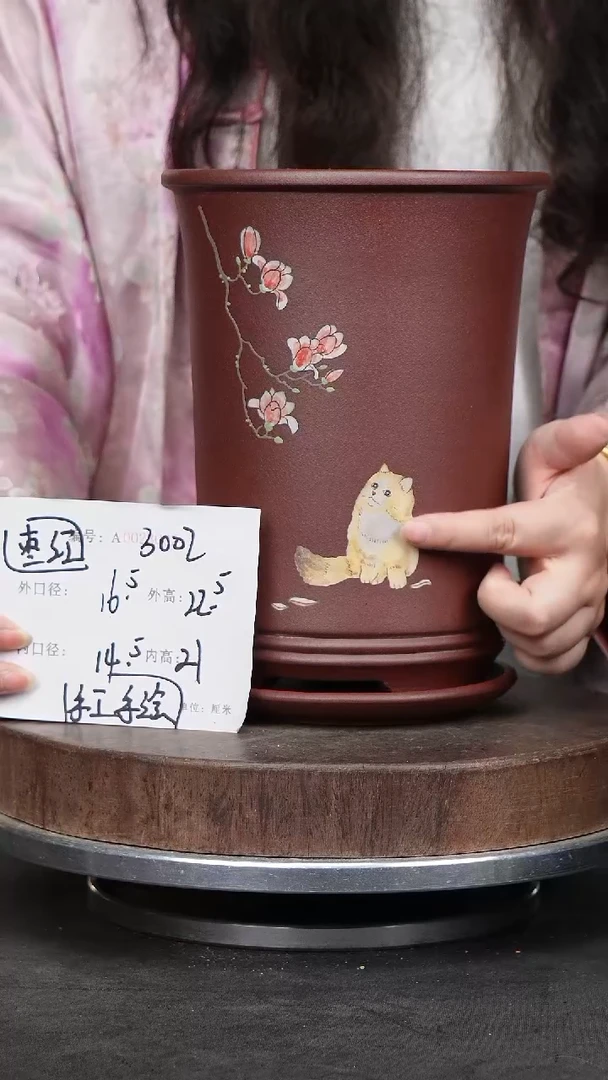 枣红 编号：A00 3002
外口径： 16.5 外高：22.5
内口径： 14.5 内高：21
手工手绘 单位：厘米